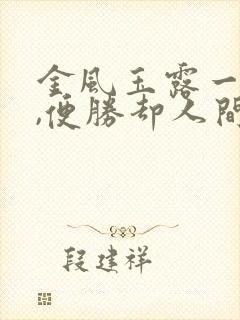 金風玉露一
,便勝却人間
段建祥